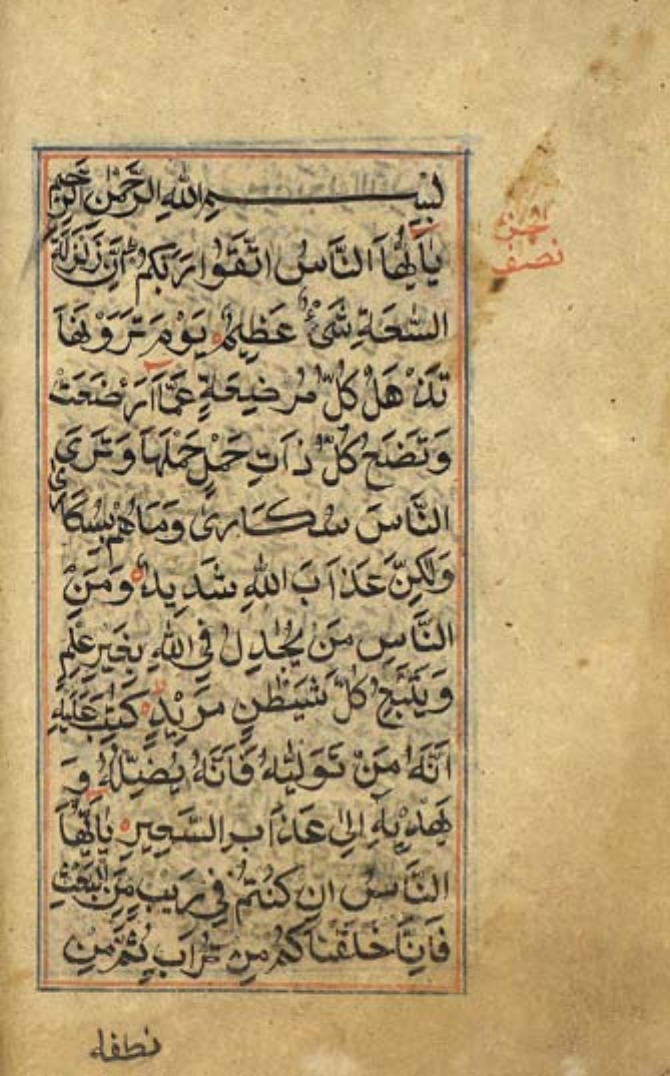 بِسْمِ اللهِ الرَّحْمٰنِ الرَّحِيْمِ
يٰاَيُّهَا النَّاسُ اتَّقُوْا رَبَّكُمْ اِنَّ زَلْزَلَةَ
السَّعَةِ شَيْءٌ عَظِيْمٌ يَوْمَ تَرَوْنَهَا
تَذْهَلُ كُلُّ مُرْضِعَةٍ عَمَّا اَرْضَعَتْ
وَتَضَعُ كُلُّ ذَاتِ حَمْلٍ حَمْلَهَا وَتَرَى
النَّاسَ سُكَارىٰ وَمَا هُمْ بِسُكَارىٰ
وَلٰكِنَّ عَذَابَ اللهِ شَدِيْدٌ وَمِنَ
النَّاسِ مَنْ يُّجٰدِلُ فِي اللهِ بِغَيْرِ عِلْمٍ
وَيَتَّبِعُ كُلَّ شَيْطٰنٍ مَرِيْدٍ كُتِبَ عَلَيْهِ
اَنَّهُ مَنْ تَوَلَّيهُ فَاَنَّهُ يُضِلُّهُ وَ
يَهْدِيْهِ اِلىٰ عَذَابِ السَّعِيْرِ يٰاَيُّهَا
النَّاسُ اِنْ كُنْتُمْ فِي رَيْبٍ مِّنَ الْبَعْثِ
فَاِنَّا خَلَقْنَاكُمْ مِنْ تُرَابٍ ثُمَّ مِنْ
نطفه
نصف